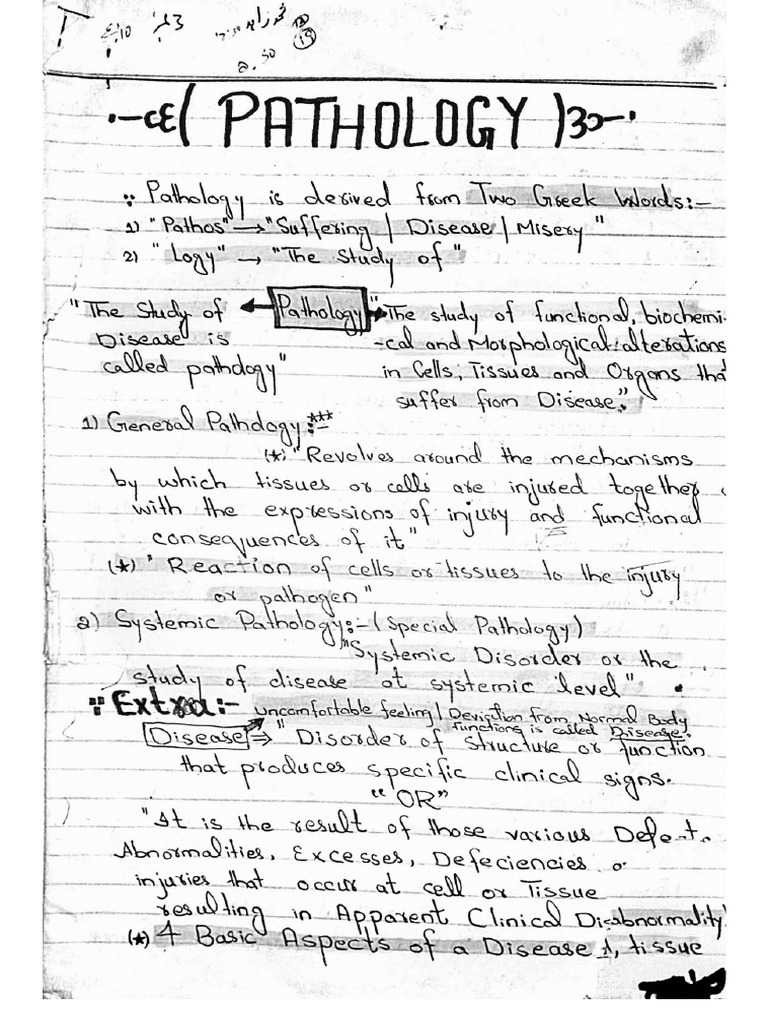 3 نمبر
2.50
19
PATHOLOGY
Pathology is derived from Two Greek Words:-
1) "Pathos" → "Suffering | Disease | Misery"
2) "Logy" → "The Study of"
"The Study of Disease is called pathology" ← Pathology → "The study of functional, biochemi-
-cal and Morphological alterations
in Cells, Tissues and Organs that
suffer from Disease."
1) General Pathology:- ***
(*) "Revolves around the mechanisms
by which tissues or cells are injured together
with the expressions of injury and functional
consequences of it"
(*) "Reaction of cells or tissues to the injury
or pathogen"
2) Systemic Pathology:- (Special Pathology)
"Systemic Disorder or the
study of disease at systemic level"
Extra:- uncomfortable feeling | Deviation from Normal Body
functions is called Disease.
Disease ⇒ "Disorder of Structure or function
that produces specific clinical signs.
"OR"
"It is the result of those various Defect
Abnormalities, Excesses, Defeciencies o
injuries that occur at cell or Tissue
resulting in Apparent Clinical Disabnormality"
(*) 4 Basic Aspects of a Disease 1, tissue